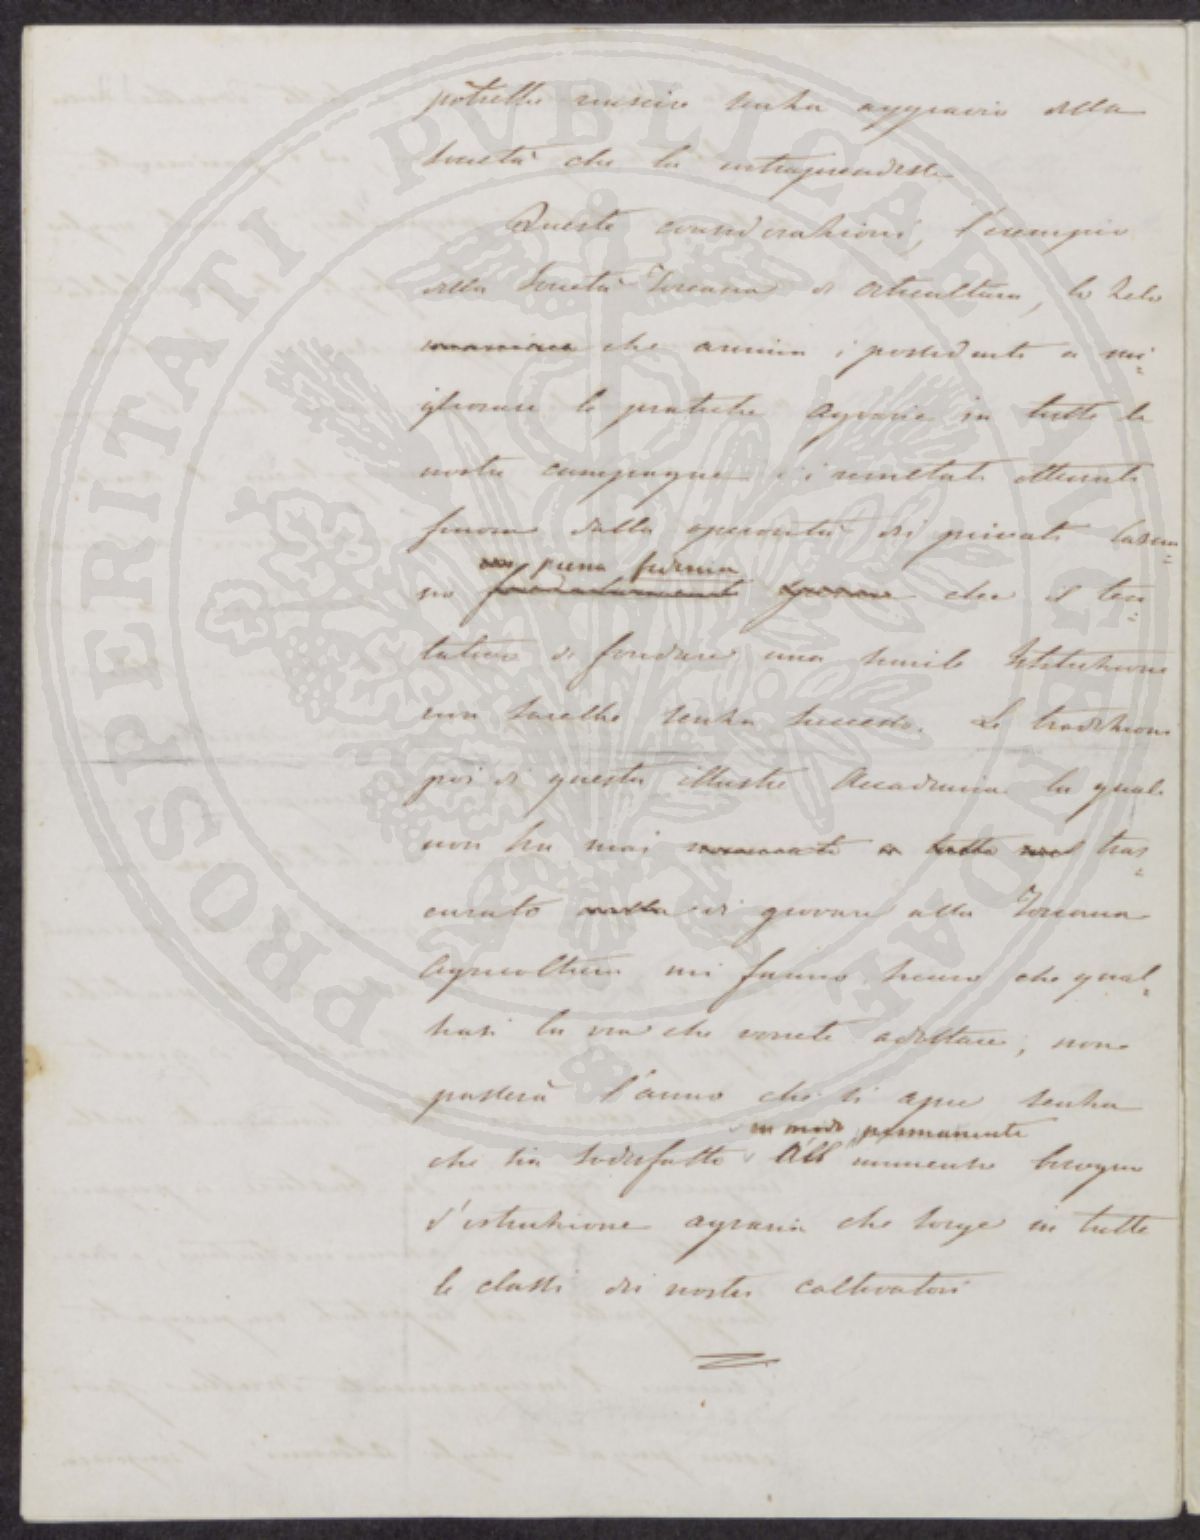 potrebbe riuscire senza aggravio della
Società che la intraprendesse.
Queste considerazioni, l'esempio
della Società Toscana di Orticultura, lo zelo
che anima i possidenti a mi=
gliorare le pratiche Agrarie in tutte le
nostre campagne i resultati ottenuti
finora dalla operosità dei privati
piena fiducia
no fondatamente sperare che il ten=
tativo di fondare una simile Istituzione
non sarebbe senza successo. Le tradizioni
poi di questa illustre Accademia la quale
non ha mai tras=
curato nulla di giovare alla Toscana
Agricoltura mi fanno sicuro che qual=
siasi la via che vorrete adottare, non
passerà l'anno che si apre senza
in modo permanente
che sia sodisfatto All'immenso bisogno
d'istruzione agraria che sorge in tutte
le classi dei nostri coltivatori
PROSPERITATI PUBLICAE AUGENDAE